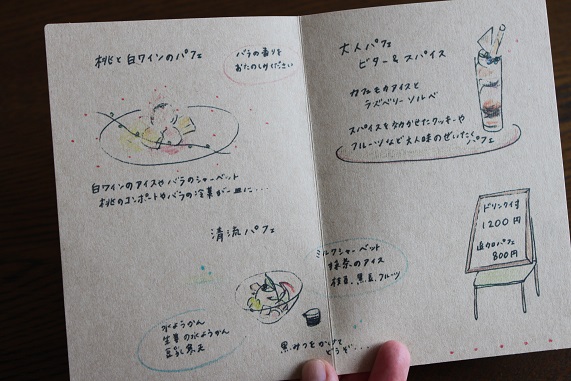 桃と白ワインのパフェ
バラの香りを
おたのしみください
白ワインのアイスやバラのシャーベット
桃のコンポートやバラの冷菓が一皿に・・・
清流パフェ
ミルクシャーベット
抹茶のアイス
枝豆、黒豆、フルーツ
水ようかん
生姜の水ようかん
豆乳寒天
黒みつをかけて
どうぞ・・・
大人パフェ
ビター&スパイス
カフェモカアイスと
ラズベリーソルベ
スパイスをきかせたクッキーや
フルーツなど大人味のぜいたく
パフェ
ドリンク付
1200円
追加パフェ
800円